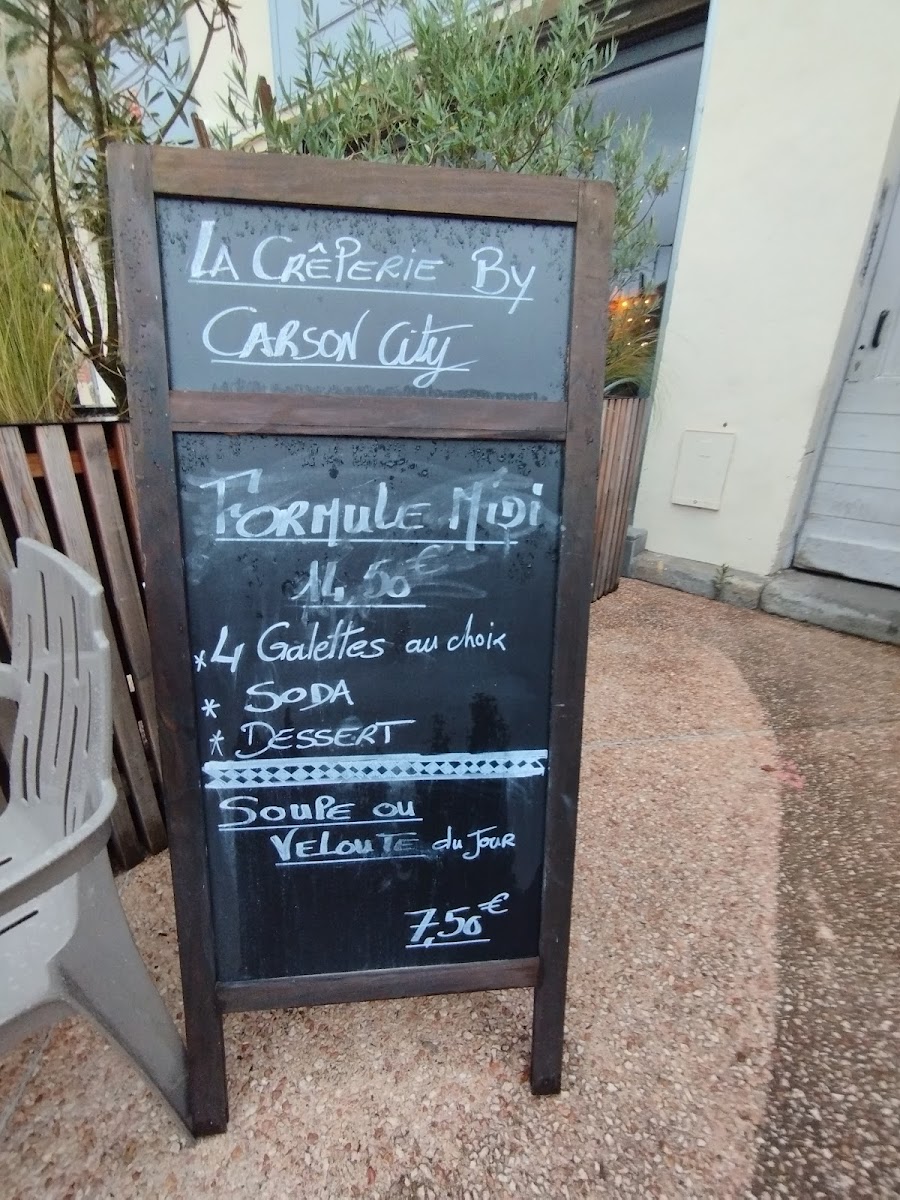 LA CRÊPERIE BY
CARSON City
FORMULE MIDI
14,50€
*4 Galettes au choix
* SODA
* DESSERT
SOUPE OU
VELOUTE du Jour
7,50€